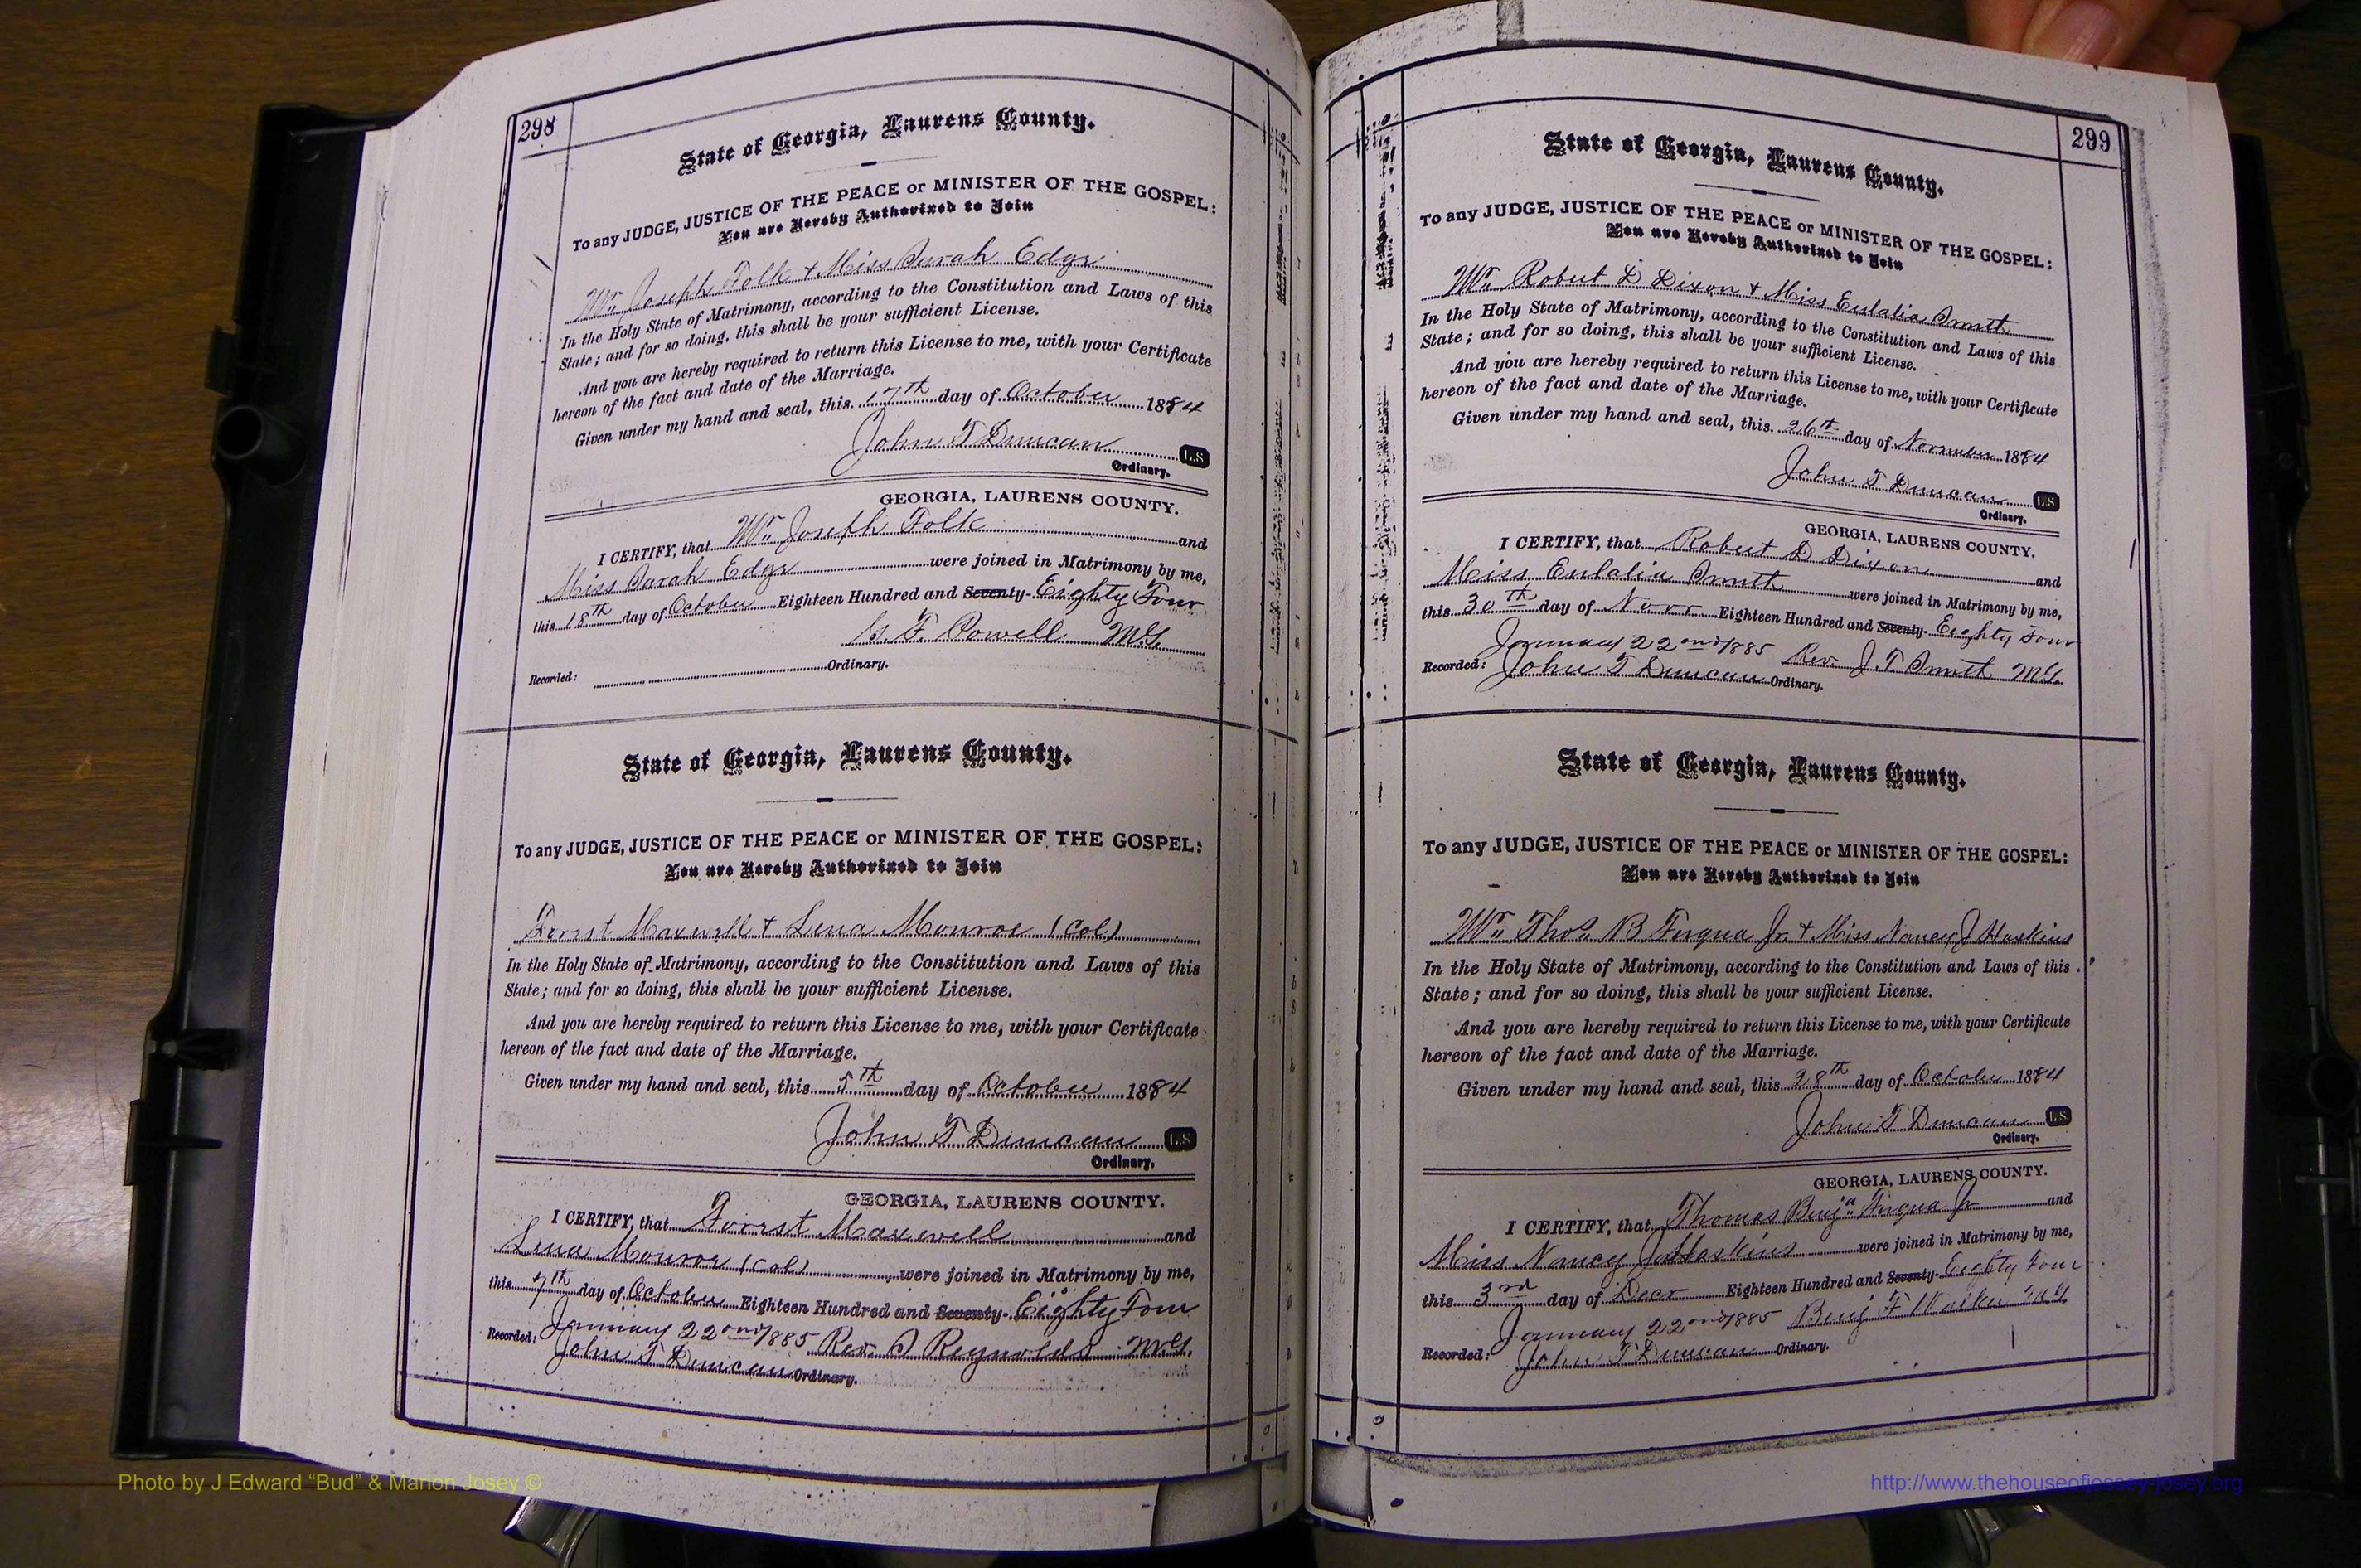 298
State of Georgia, Laurens County.
To any JUDGE, JUSTICE OF THE PEACE or MINISTER OF THE GOSPEL:
You are Hereby Authorized to Join
Mr. Joseph Folk + Miss Sarah Edge
In the Holy State of Matrimony, according to the Constitution and Laws of this
State; and for so doing, this shall be your sufficient License.
And you are hereby required to return this License to me, with your Certificate
hereon of the fact and date of the Marriage.
Given under my hand and seal, this 17th day of October 1884
John T Duncan L.S
Ordinary.
GEORGIA, LAURENS COUNTY.
I CERTIFY, that Mr. Joseph Folk and
Miss Sarah Edge were joined in Matrimony by me,
this 18th day of October Eighteen Hundred and Seventy- Eighty Four
F. Powell MG
Recorded: Ordinary.
State of Georgia, Laurens County.
To any JUDGE, JUSTICE OF THE PEACE or MINISTER OF THE GOSPEL:
You are Hereby Authorized to Join
Forrst Maxwell + Lena Monroe (Col)
In the Holy State of Matrimony, according to the Constitution and Laws of this
State; and for so doing, this shall be your sufficient License.
And you are hereby required to return this License to me, with your Certificate
hereon of the fact and date of the Marriage.
Given under my hand and seal, this 5th day of October 1884
John T Duncan L.S
Ordinary.
GEORGIA, LAURENS COUNTY.
I CERTIFY, that Forrst Maxwell and
Lena Monroe (Col) were joined in Matrimony by me,
this 7th day of October Eighteen Hundred and Seventy- Eighty Four
January 22nd 1885 Rev. S Reynolds MG.
Recorded: John T Duncan Ordinary.
299
State of Georgia, Laurens County.
To any JUDGE, JUSTICE OF THE PEACE or MINISTER OF THE GOSPEL:
You are Hereby Authorized to Join
Mr. Robert D Dixon + Miss Eulalia Smith
In the Holy State of Matrimony, according to the Constitution and Laws of this
State; and for so doing, this shall be your sufficient License.
And you are hereby required to return this License to me, with your Certificate
hereon of the fact and date of the Marriage.
Given under my hand and seal, this 26th day of November 1884
John T Duncan L.S
Ordinary.
GEORGIA, LAURENS COUNTY.
I CERTIFY, that Robert D Dixon and
Miss Eulalia Smith were joined in Matrimony by me,
this 30th day of Novr Eighteen Hundred and Seventy- Eighty Four
January 22nd 1885 Rev. J. T Smith MG.
Recorded: John T Duncan Ordinary.
State of Georgia, Laurens County.
To any JUDGE, JUSTICE OF THE PEACE or MINISTER OF THE GOSPEL:
You are Hereby Authorized to Join
Mr. Thos. B Fuqua Jr. + Miss Nancy J Haskins
In the Holy State of Matrimony, according to the Constitution and Laws of this
State; and for so doing, this shall be your sufficient License.
And you are hereby required to return this License to me, with your Certificate
hereon of the fact and date of the Marriage.
Given under my hand and seal, this 28th day of October 1884
John T Duncan L.S
Ordinary.
GEORGIA, LAURENS COUNTY.
I CERTIFY, that Thomas Benja Fuqua Jr and
Miss Nancy J Haskins were joined in Matrimony by me,
this 3rd day of Decr Eighteen Hundred and Seventy- Eighty Four
January 22nd 1885 Benj F Walker MG
Recorded: John T Duncan Ordinary.
Photo by J Edward “Bud” & Marion Josey ©
http://www.thehouseofjossey-josey.org